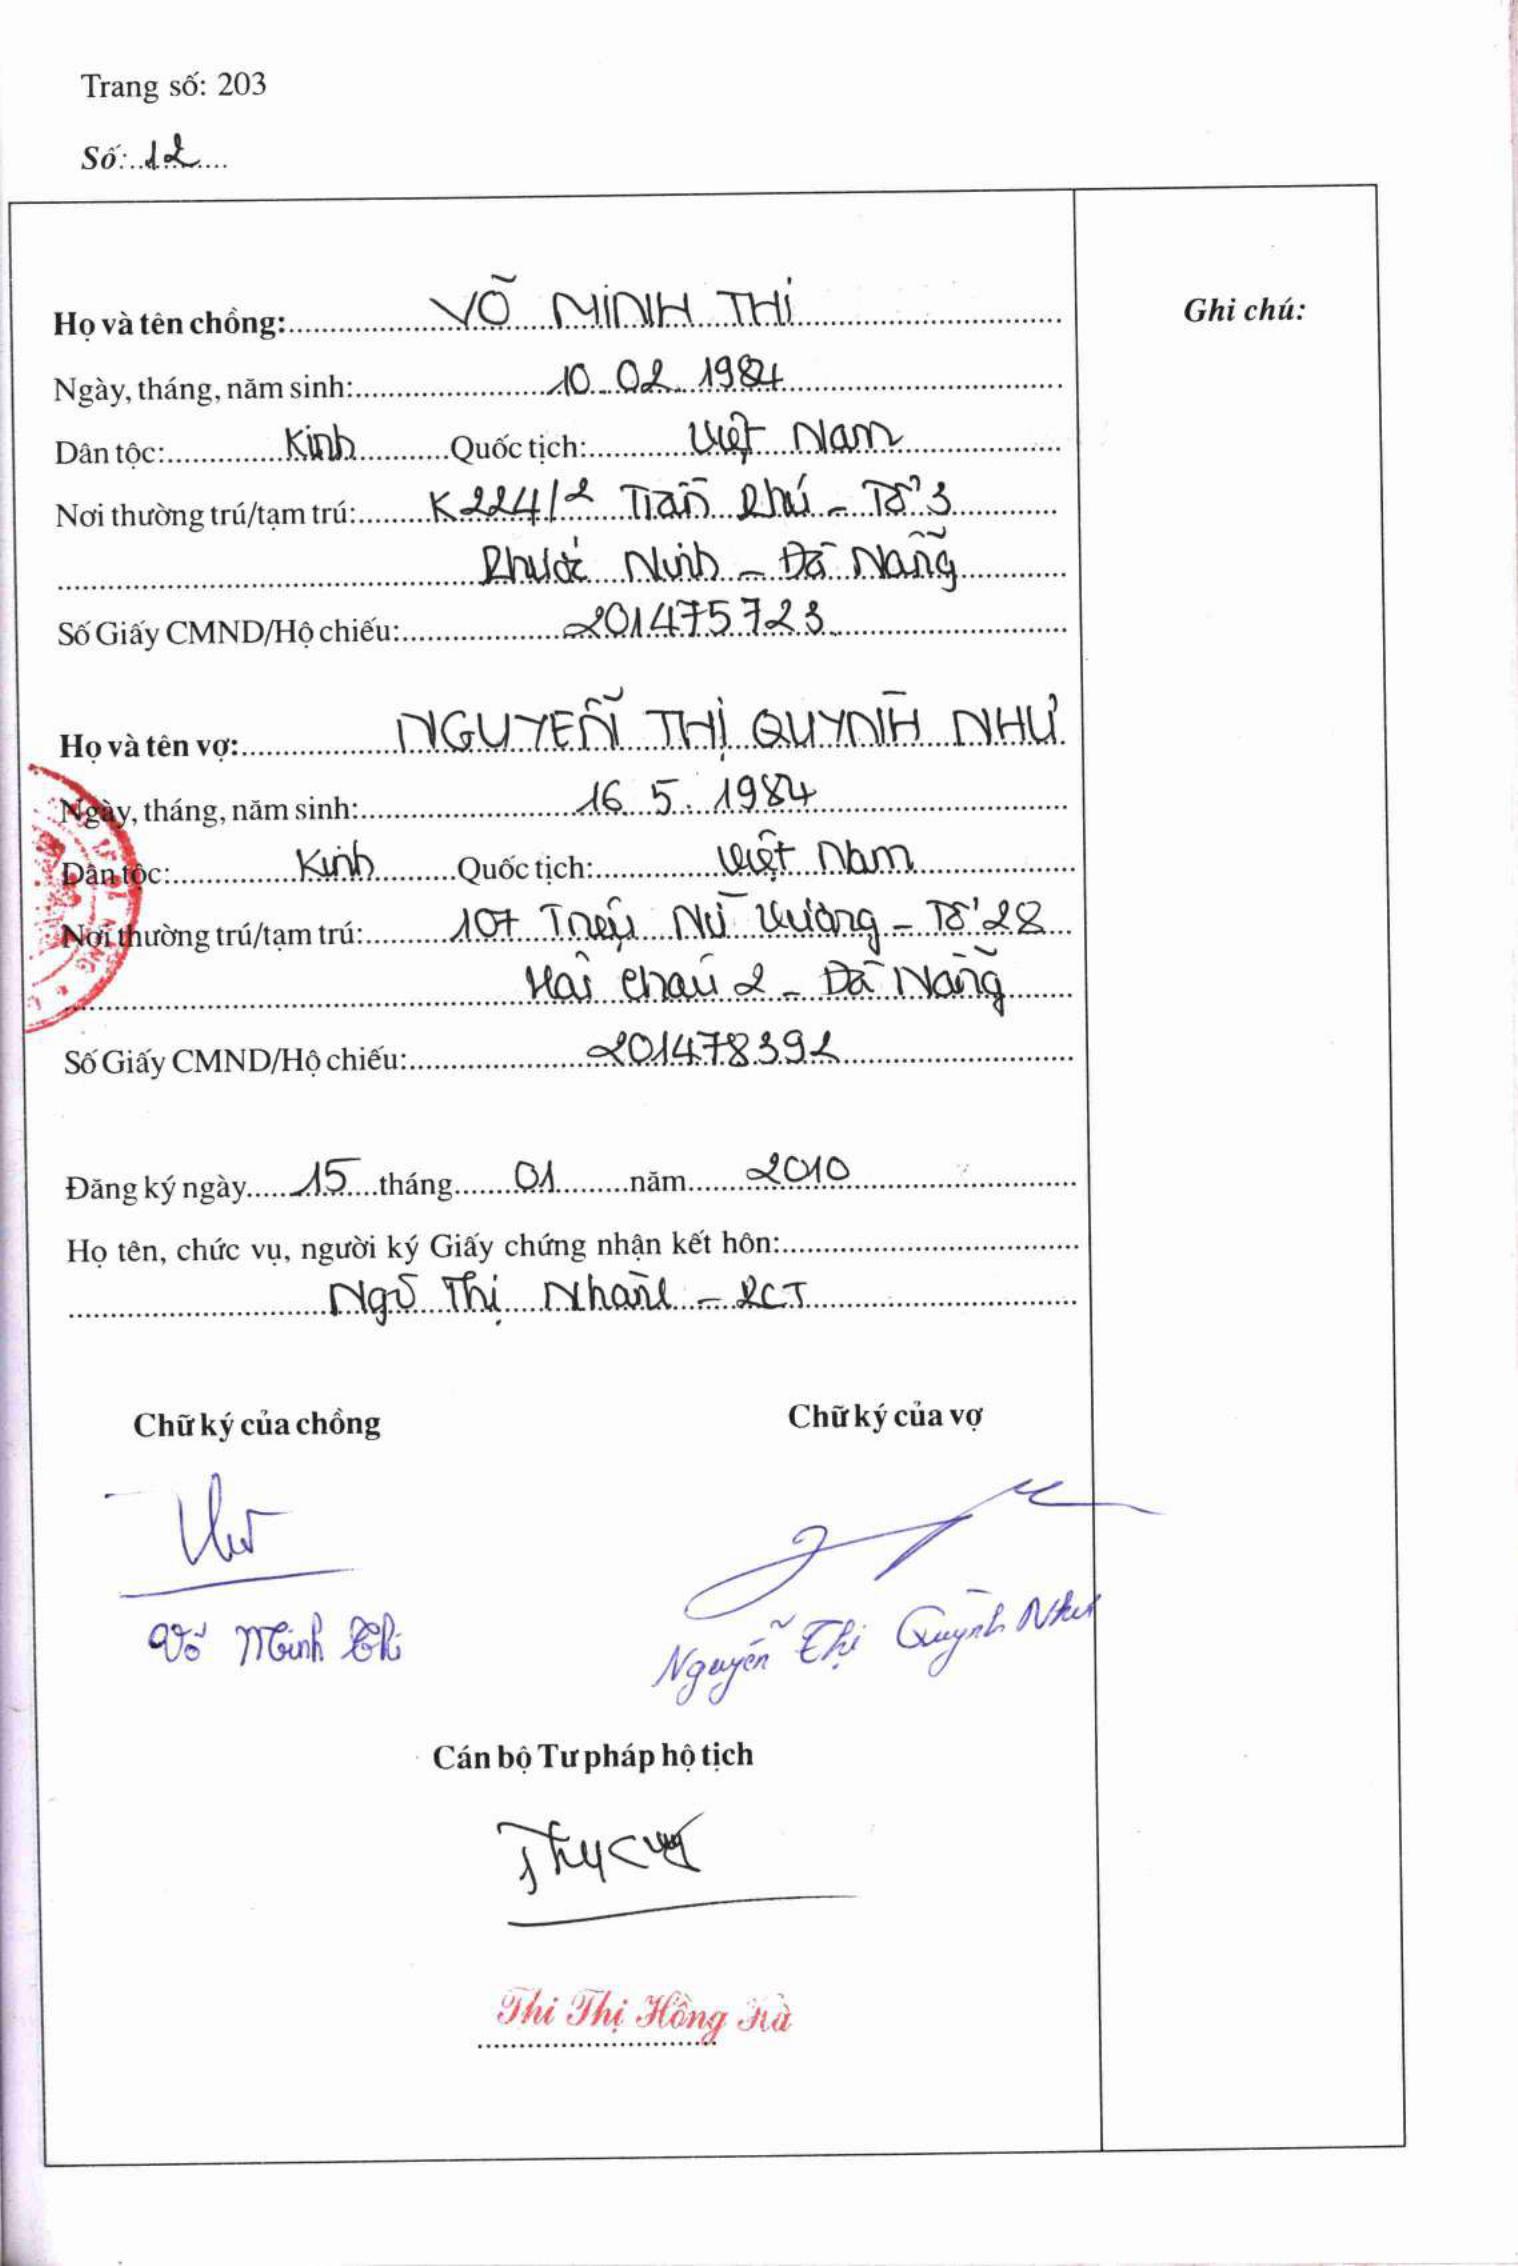 Trang số: 203
Số: 12
Họ và tên chồng: VÕ MINH THI
Ghi chú:
Ngày, tháng, năm sinh: 10 02 1984
Dân tộc: Kinh Quốc tịch: Việt Nam
Nơi thường trú/tạm trú: K224/2 Trần Phú - Tổ 3
Phước Ninh - Đà Nẵng
Số Giấy CMND/Hộ chiếu: 201475723
Họ và tên vợ: NGUYỄN THỊ QUỲNH NHƯ
Ngày, tháng, năm sinh: 16 5. 1984
Dân tộc: Kinh Quốc tịch: Việt Nam
Nơi thường trú/tạm trú: 107 Triệu Nữ Vương - Tổ 28
Hải Châu 2 - Đà Nẵng
Số Giấy CMND/Hộ chiếu: 201478392
Đăng ký ngày 15 tháng 01 năm 2010
Họ tên, chức vụ, người ký Giấy chứng nhận kết hôn:
Ngô Thị Nhàn - PCT
Chữ ký của chồng
Chữ ký của vợ
Võ Minh Thi
Nguyễn Thị Quỳnh Như
Cán bộ Tư pháp hộ tịch
Thi Thị Hồng Hà